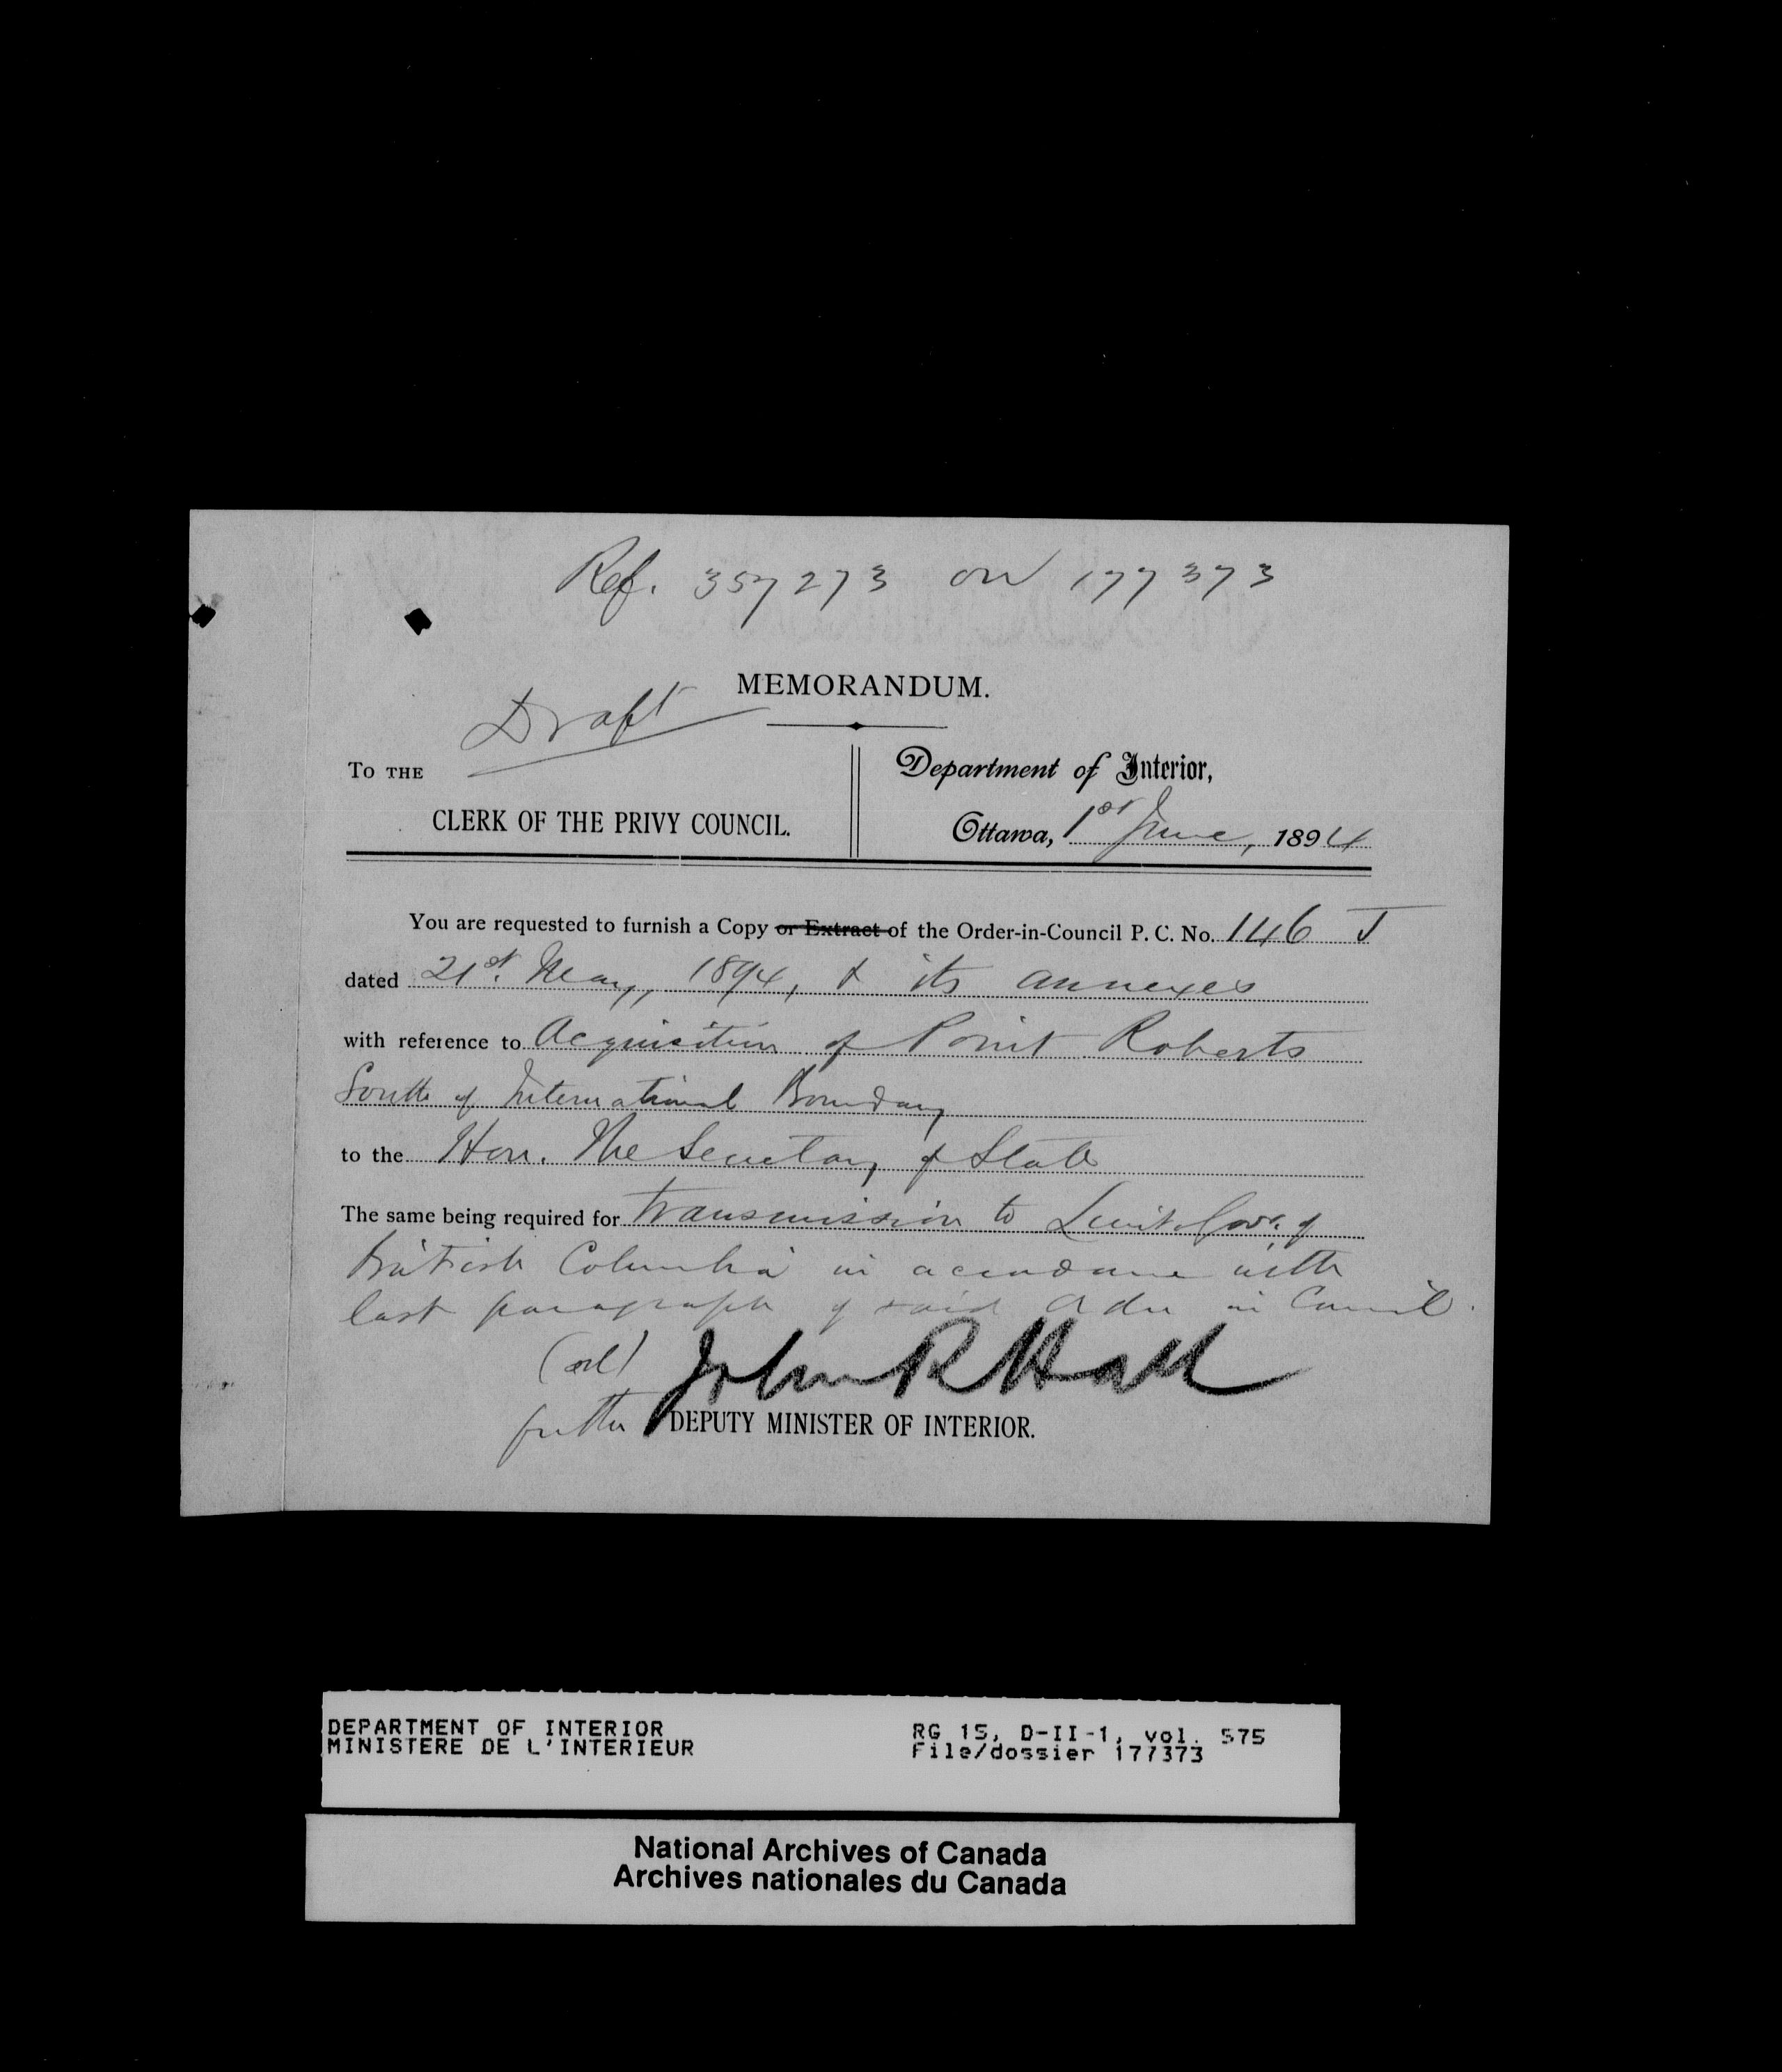 Ref. 357273 on 177373
MEMORANDUM.
Draft
TO THE
CLERK OF THE PRIVY COUNCIL.
Department of Interior,
Ottawa, 1st June, 1894
You are requested to furnish a Copy or Extract of the Order-in-Council P. C. No. 146 J
dated 21st. May, 1894, & its annexes
with reference to Acquisition of Point Roberts
South of International Boundary
to the Hon. The Secretary of State
The same being required for transmission to Lieut. Gov. of
British Columbia in accordance with
last paragraph of said Order in Council.
John R Hall
for the DEPUTY MINISTER OF INTERIOR.
DEPARTMENT OF INTERIOR
MINISTERE DE L'INTERIEUR
RG 15, D-II-1, vol. 575
File/dossier 177373
National Archives of Canada
Archives nationales du Canada